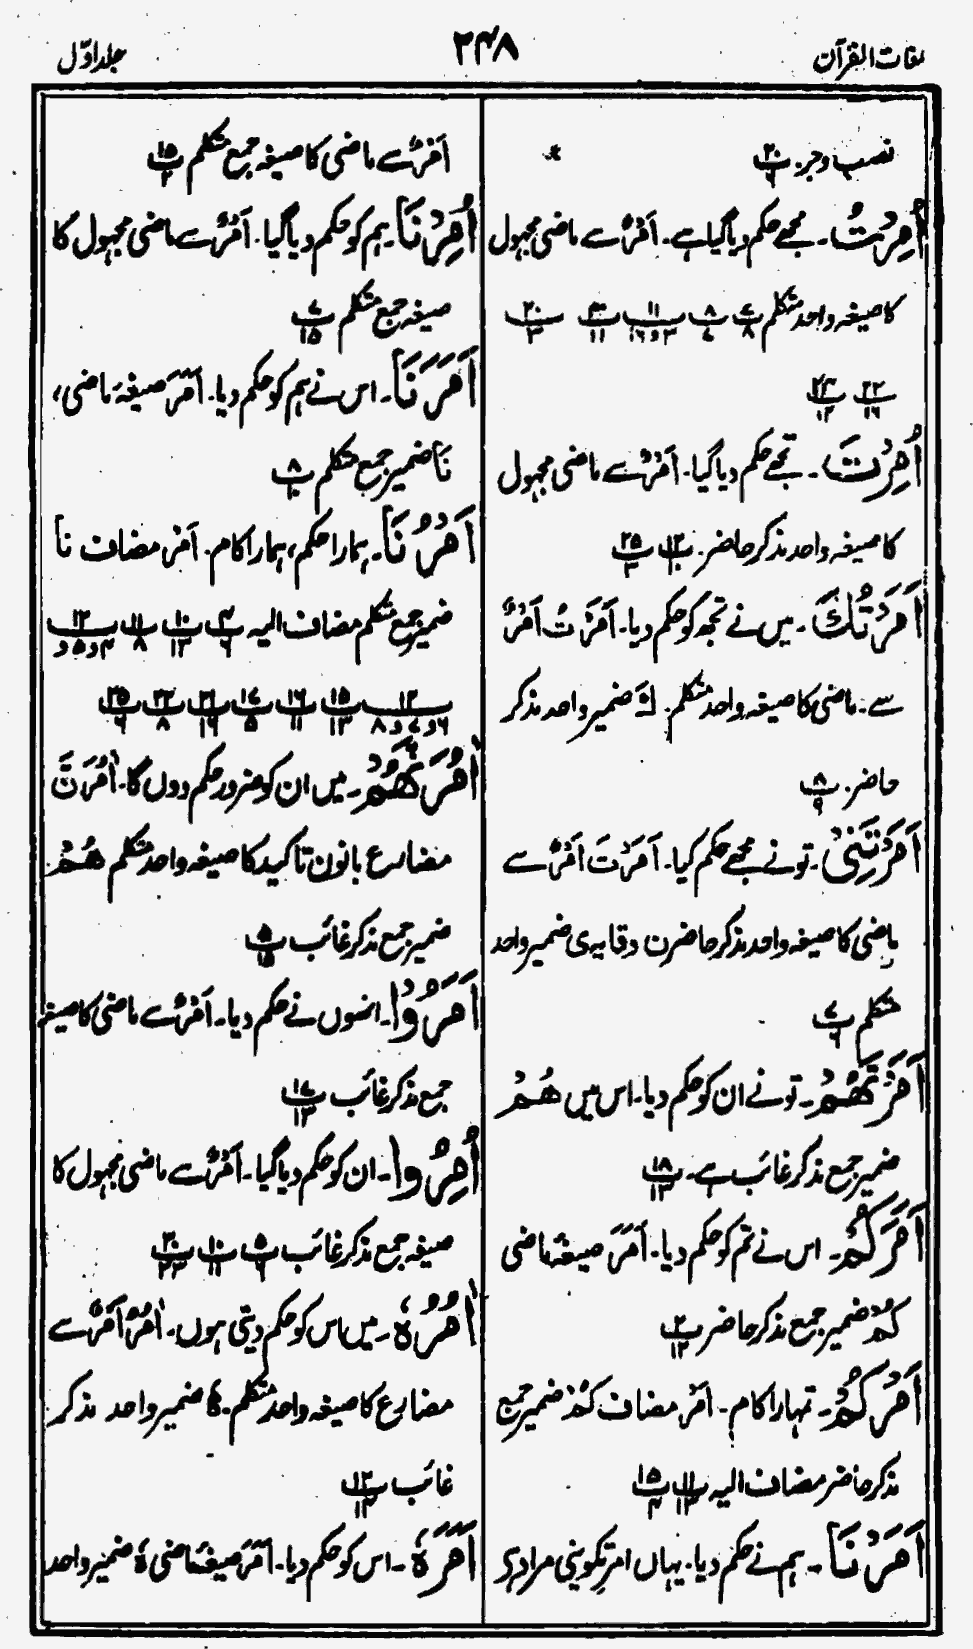 لغات القرآن
۲۴۸
جلد اوّل
نصب و جر۔ پ۲۰ ۶
اُمِرْتُ۔ مجھے حکم دیا گیا ہے۔ اَمْرٌ سے ماضی مجہول
کا صیغہ واحد متکلم
۲۲ ۱۶ ۲۴ ۱۲
اُمِرْتَ۔ تجھے حکم دیا گیا۔ اَمْرٌ سے ماضی مجہول
کا صیغہ واحد مذکر حاضر۔ پ۱۲ ۱۰ پ۲۵ ۳
اَمَرْتُكَ۔ میں نے تجھ کو حکم دیا۔ اَمَرْتُ اَمْرٌ
سے۔ ماضی کا صیغہ واحد متکلم۔ كَ ضمیر واحد مذکر
حاضر۔ پ۸ ۹
اَمَرْتَنِیْ۔ تو نے مجھے حکم کیا۔ اَمَرْتَ اَمْرٌ سے
ماضی کا صیغہ واحد مذکر حاضر ن وقایہ ی ضمیر واحد
متکلم پ۷ ۶
اَمَرْتَهُمْ۔ تو نے ان کو حکم دیا۔ اس میں هُمْ
ضمیر جمع مذکر غائب ہے۔ پ۱۸ ۱۳
اَمَرَكُمْ۔ اس نے تم کو حکم دیا۔ اَمَرَ صیغہ ماضی
كُمْ ضمیر جمع مذکر حاضر پ۲ ۱۲
اَمْرُكُمْ۔ تمہارا کام۔ اَمْرُ مضاف كُمْ ضمیر جمع
مذکر حاضر مضاف الیہ پ۱۱ ۱۳ پ۱۵ ۱۴
اَمَرْنَا۔ ہم نے حکم دیا۔ یہاں امر تکوینی مراد ہی
اَمْرٌ سے ماضی کا صیغہ جمع متکلم پ۱۵ ۲
اُمِرْنَا۔ ہم کو حکم دیا گیا۔ اَمْرٌ سے ماضی مجہول کا
صیغہ جمع متکلم پ۷ ۱۵
اَمَرَنَا۔ اس نے ہم کو حکم دیا۔ اَمَرَ صیغہ ماضی،
نَا ضمیر جمع متکلم پ۸ ۱۰
اَمْرُنَا۔ ہمارا حکم، ہمارا کام۔ اَمْرُ مضاف نا
ضمیر جمع متکلم مضاف الیہ
اٰمُرَنَّهُمْ۔ میں ان کو ضرور حکم دوں گا۔ اٰمُرَنَّ
مضارع بانون تاکید کا صیغہ واحد متکلم هُمْ
ضمیر جمع مذکر غائب پ۵ ۱۵
اَمَرُوْا۔ انھوں نے حکم دیا۔ اَمْرٌ سے ماضی کا صیغہ
جمع مذکر غائب پ۱۷ ۱۳
اُمِرُوا۔ ان کو حکم دیا گیا۔ اَمْرٌ سے ماضی مجہول کا
صیغہ جمع مذکر غائب پ۵ ۶ پ۱۰ ۱۱ پ۳۰ ۲۳
اٰمُرُهٗ۔ میں اس کو حکم دیتی ہوں۔ اٰمُرُ اَمْرٌ سے
مضارع کا صیغہ واحد متکلم۔ هٗ ضمیر واحد مذکر
غائب پ۱۲ ۱۴
اَمَرَهٗ۔ اس کو حکم دیا۔ اَمَرَ صیغہ ماضی هٗ ضمیر واحد